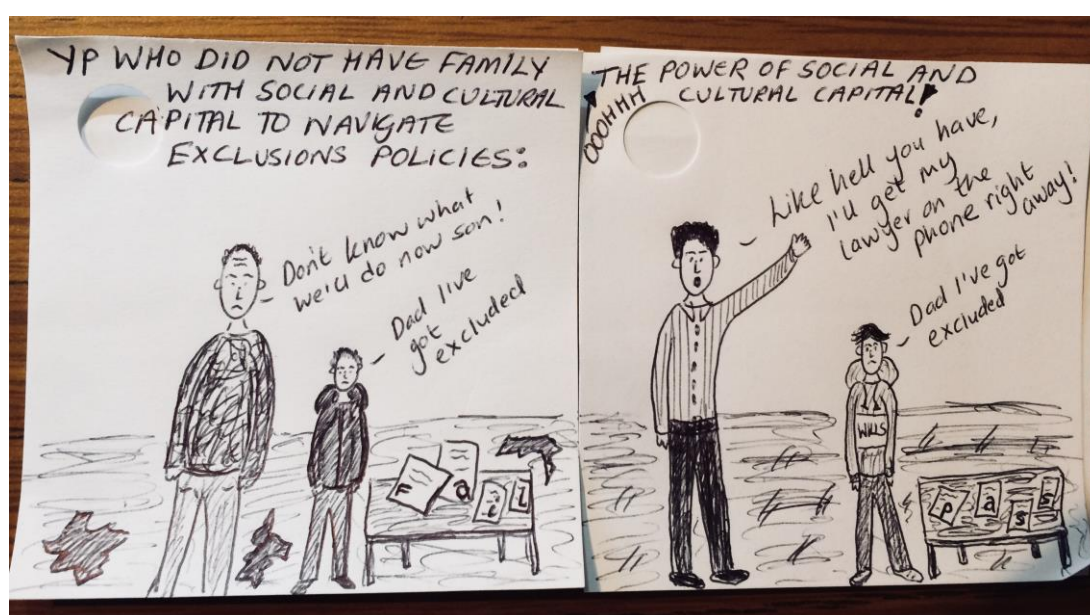 YP WHO DID NOT HAVE FAMILY
WITH SOCIAL AND CULTURAL
CAPITAL TO NAVIGATE
EXCLUSIONS POLICIES:
Don't know what
we'll do now son!
Dad I've
got
excluded
F
a
i
l
THE POWER OF SOCIAL AND
CULTURAL CAPITAL!
OOOHHH
Like hell you have,
I'll get my
lawyer on the
phone right
away!
Dad I've got
excluded
WILLS
P
a
s
s